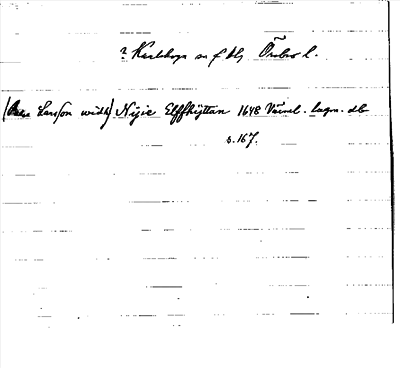 ? Karlskoga sn f blg Örebro l.
(Lars Larsson widh) Nyie Elffhyttan 1648 Värml. lagm. db
s. 167.